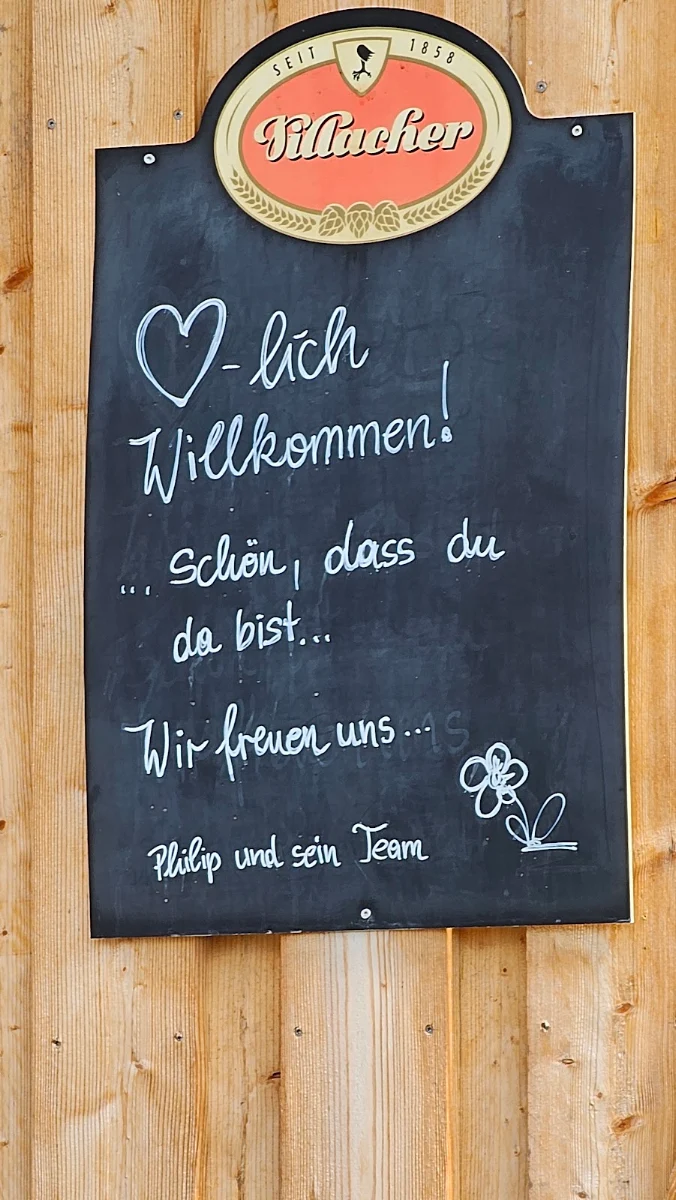 SEIT 1858
Villacher
♡-lich
Willkommen!
... Schön, dass du
da bist...
Wir freuen uns...
Philip und sein Team